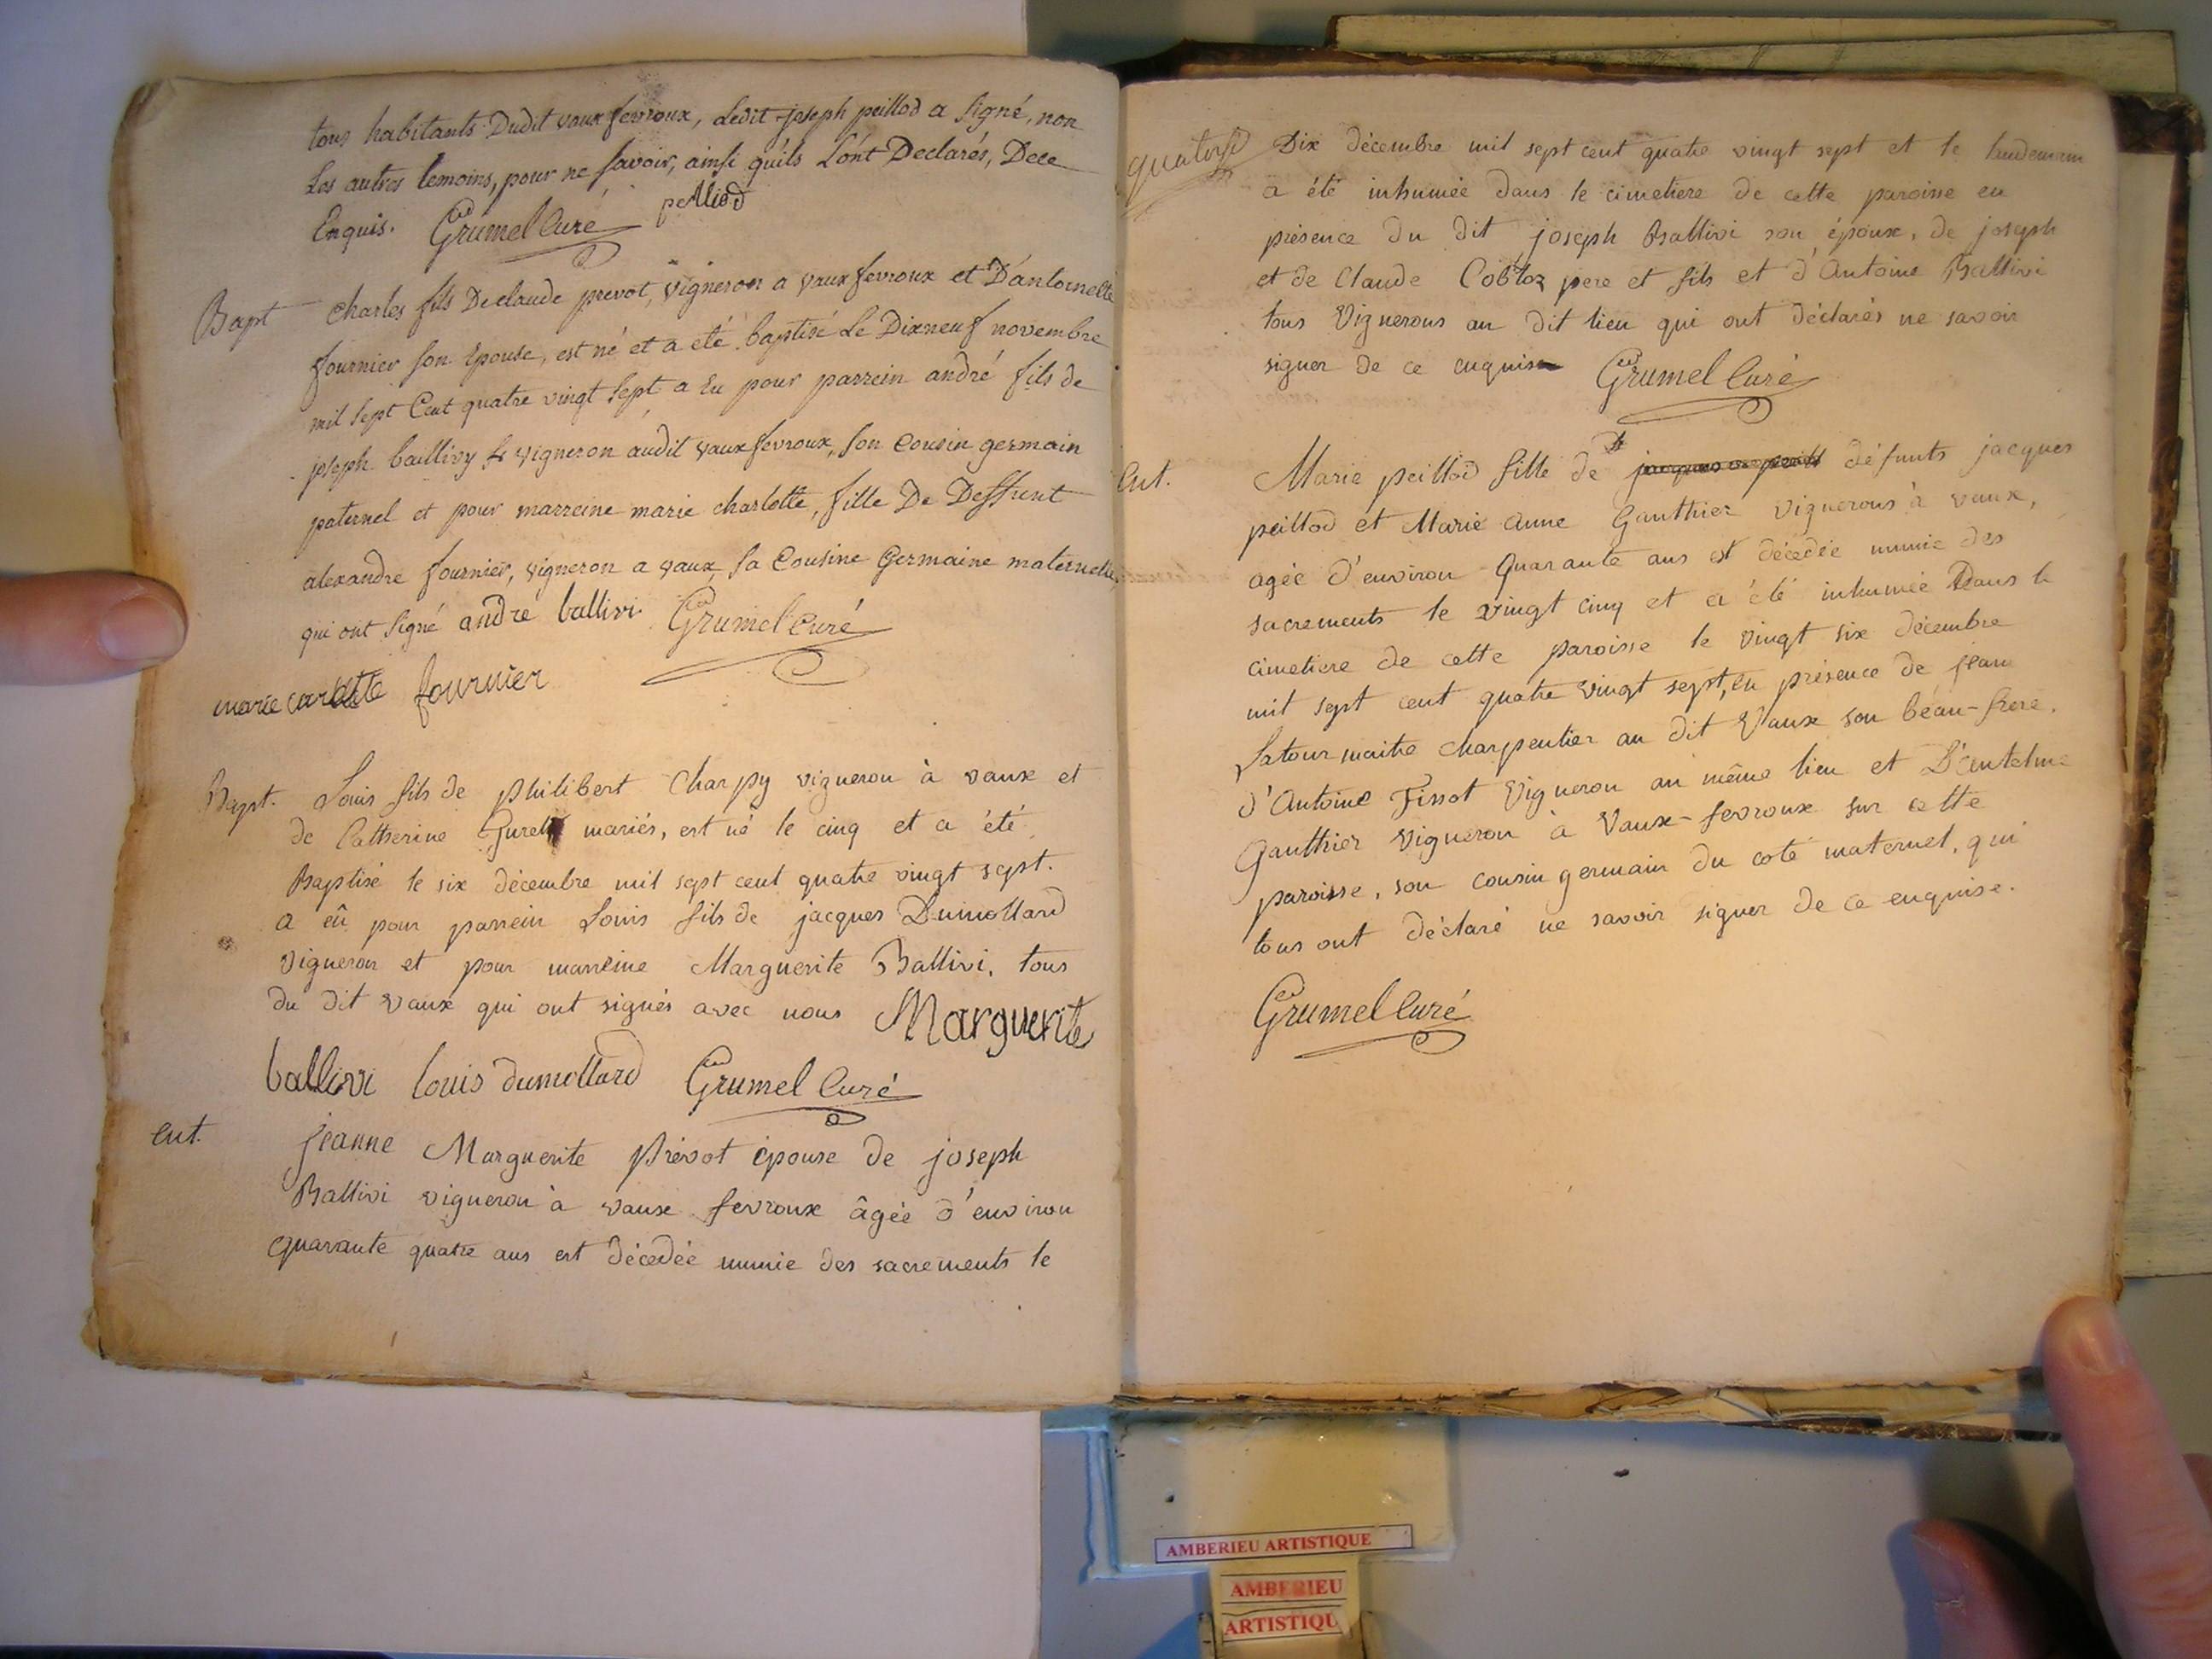 tous habitants Dudit vaux fevroux, Ledit joseph peillod a signé, non
Les autres temoins, pour ne savoir, ainsi qu'ils L'ont Declarés, Dece
Enquis. Grumel Curé peilliod
Bapt charles fils De claude prevot, vigneron a vaux fevroux et D'antoinette
fournier son Epouse, est né et a eté baptisé Le Dixneuf novembre
mil sept Cent quatre vingt sept a Eu pour parrein andré fils de
joseph baillivy vigneron audit vaux fevroux, son Cousin germain
paternel et pour marreine marie charlotte, fille De Deffunt
alexandre fournier, vigneron a vaux, sa Cousine Germaine maternelle,
qui ont signé andré ballivi. Grumel Curé
marie fournier
Bapt. Louis fils de philibert Charpy vigneron à vaux et
de Catherine mariés, est né le cinq et a été
Baptisé le six décembre mil sept cent quatre vingt sept.
a eû pour parrein Louis fils de jacques Dumollard
vigneron et pour marreine Marguerite Ballivi, tous
du dit vaux qui ont signés avec nous Marguerite
ballivi louis dumollard Grumel Curé
ent. jeanne Marguerite Prévot épouse de joseph
Ballivi vigneron à vaux fevroux âgée d'environ
quarante quatre ans est décedée munie des sacrements le
Dix décembre mil sept cent quatre vingt sept et le lendemain
a été inhumée dans le cimetiere de cette paroisse en
présence du dit joseph Ballivi son époux, de joseph
et de Claude Cobloz pere et fils et d'Antoine Ballivi
tous Vignerons au dit lieu qui ont déclarés ne savoir
signer de ce enquis Grumel Curé
Ent. Marie peillod fille de défunts jacques
peillod et Marie Anne Gauthier vignerons à vaux,
agée d'environ Quarante ans est décedée munie des
sacrements le vingt cinq et a été inhumée Dans le
cimetiere de cette paroisse le vingt six décembre
mil sept cent quatre vingt sept, en présence de jean
Latour maitre charpentier au dit Vaux son beau-frere,
d'Antoine Tissot Vigneron au même lieu et D'antelme
Gauthier Vigneron à Vaux-fevroux sur cette
paroisse, son cousin germain du coté maternel, qui
tous ont déclaré ne savoir signer de ce enquise.
Grumel Curé
AMBERIEU ARTISTIQUE
AMBERIEU
ARTISTIQU